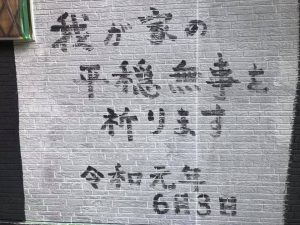 我が家の
平穏無事を
祈ります
令和元年
6月3日